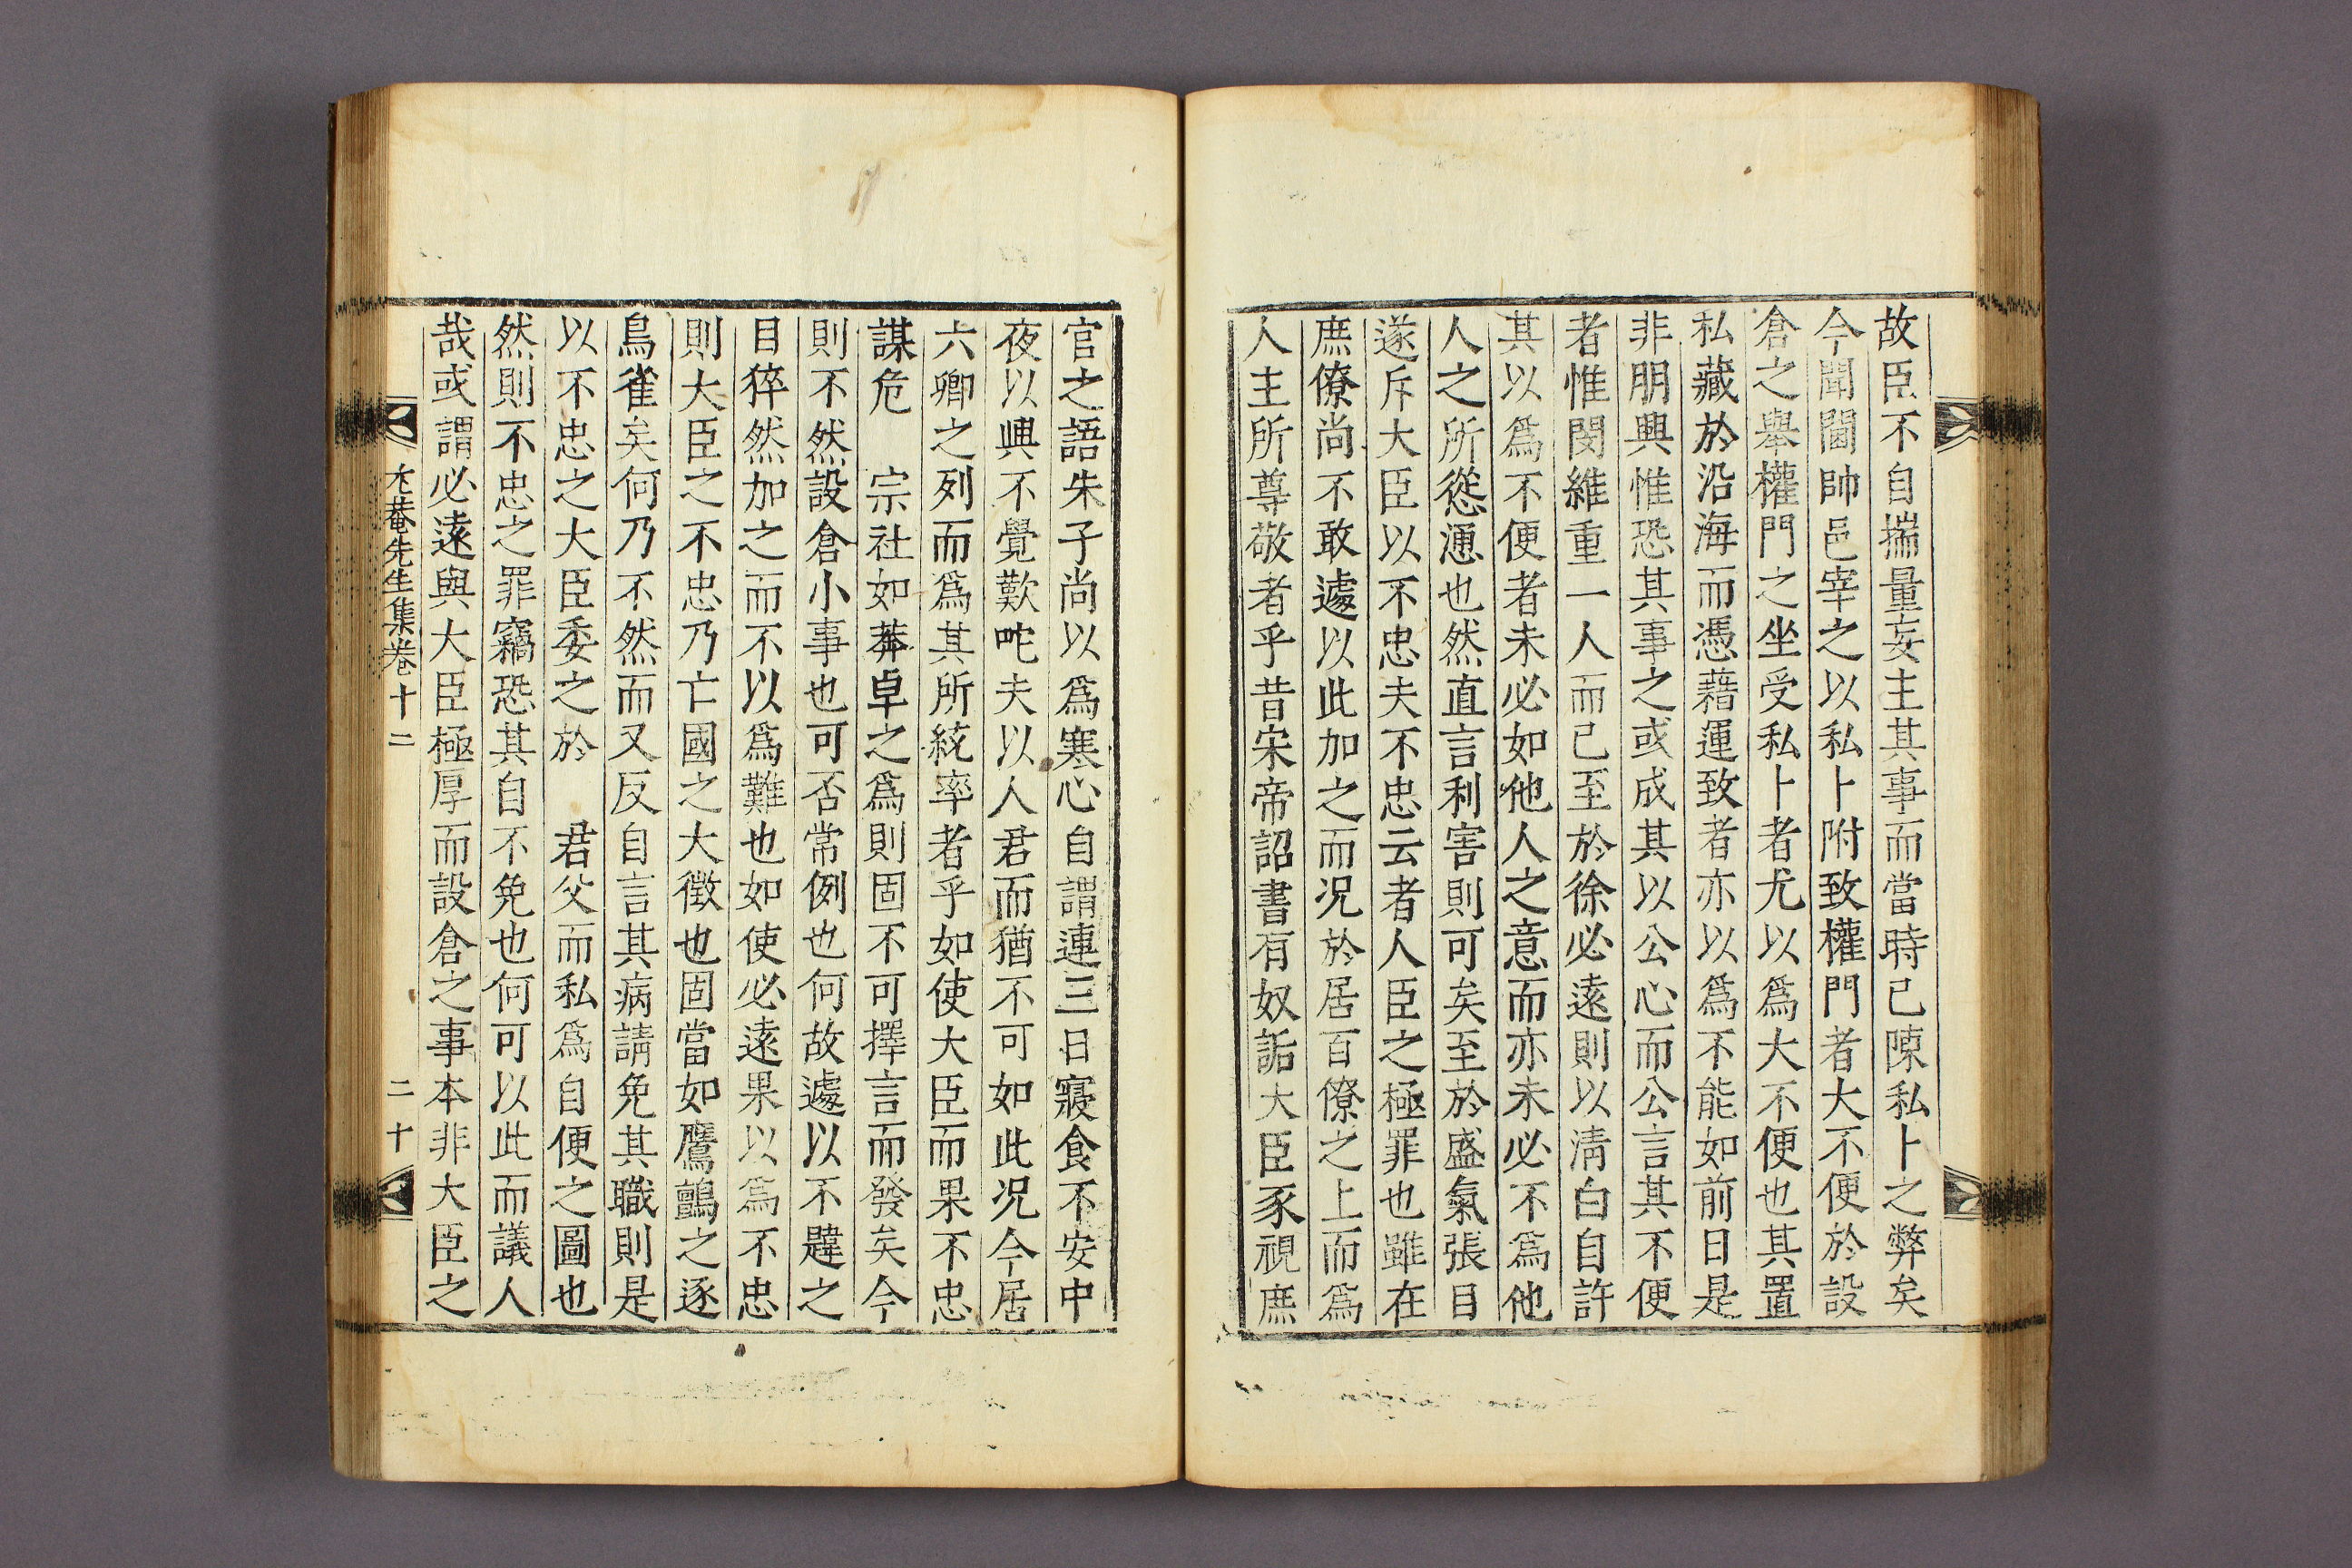 故臣不自揣量妄主其事而當時已陳私卜之弊矣
今聞閫帥邑宰之以私卜附致權門者大不便於設
倉之舉權門之坐受私卜者尤以爲大不便也其置
私藏於沿海而憑藉運致者亦以爲不能如前日是
非朋興惟恐其事之或成其以公心而公言其不便
者惟閔維重一人而已至於徐必遠則以淸白自許
其以爲不便者未必如他人之意而亦未必不爲他
人之所慫慂也然直言利害則可矣至於盛氣張目
遂斥大臣以不忠夫不忠云者人臣之極罪也雖在
庶僚尚不敢遽以此加之而况於居百僚之上而爲
人主所尊敬者乎昔宋帝詔書有奴詬大臣豕視庶
官之語朱子尚以爲寒心自謂連三日寢食不安中
夜以興不覺歎咤夫以人君而猶不可如此况今居
六卿之列而爲其所統率者乎如使大臣而果不忠
謀危　宗社如莽卓之爲則固不可擇言而發矣今
則不然設倉小事也可否常例也何故遽以不韙之
目猝然加之而不以爲難也如使必遠果以爲不忠
則大臣之不忠乃亡國之大徵也固當如鷹鸇之逐
鳥雀矣何乃不然而又反自言其病請免其職則是
以不忠之大臣委之於　君父而私爲自便之圖也
然則不忠之罪竊恐其自不免也何可以此而議人
哉或謂必遠與大臣極厚而設倉之事本非大臣之
尤菴先生集卷十二　二十